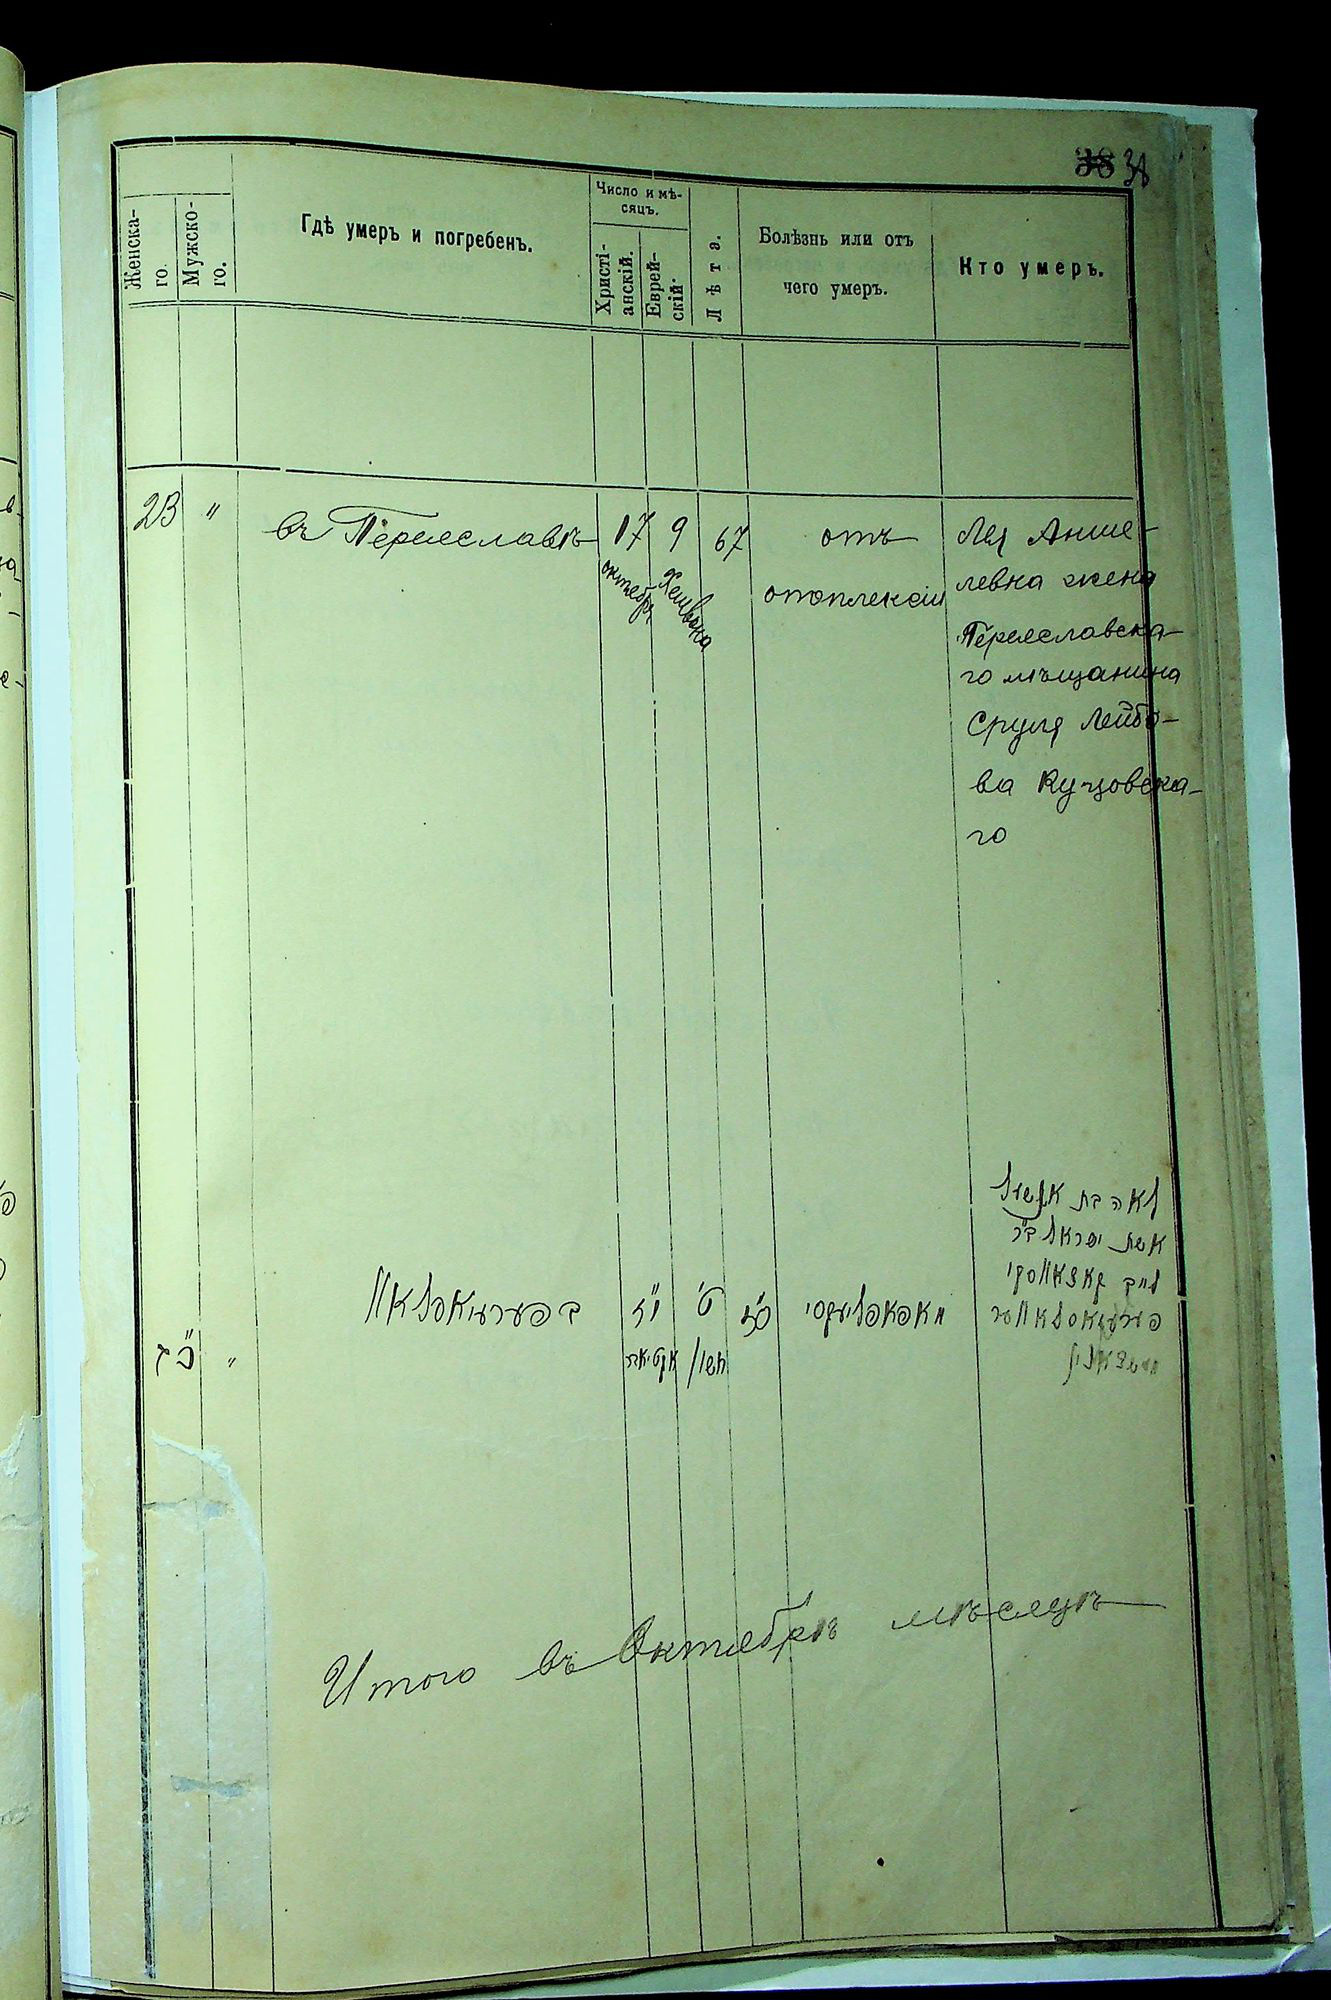 38 38
Женска-
го.
Мужско-
го.
Гдѣ умеръ и погребенъ.
Число и мѣ-
сяцъ.
Христі-
анскій.
Еврей-
скій.
Лѣта.
Болѣзнь или отъ
чего умеръ.
Кто умеръ.
23 "
въ Переяславѣ
17
октября
9
Хешвана
67
отъ
апоплексіи
Лея Анше-
левна жена
Переяславска-
го мѣщанина
Сруля Лейбо-
ва
го
לאה בת אנשיל
אשת ישראל ב"ר
לייב
ט'
חשון
ס"ז
י"ז
כ"ג "
Итого въ Октябрѣ мѣсяцѣ